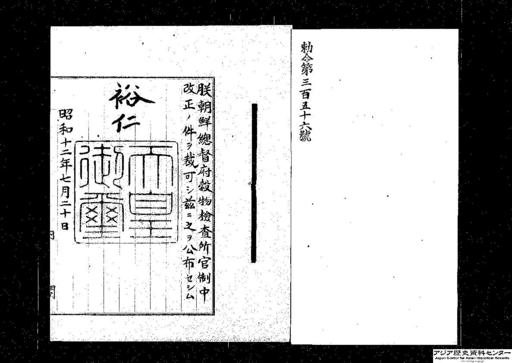 勅令第三百五十六號
朕朝鮮總督府穀物檢査所官制中
改正ノ件ヲ裁可シ茲ニ之ヲ公布セシム
裕仁
天皇
御璽
昭和十二年七月二十日
アジア歴史資料センター
Japan Center for Asian Historical Records